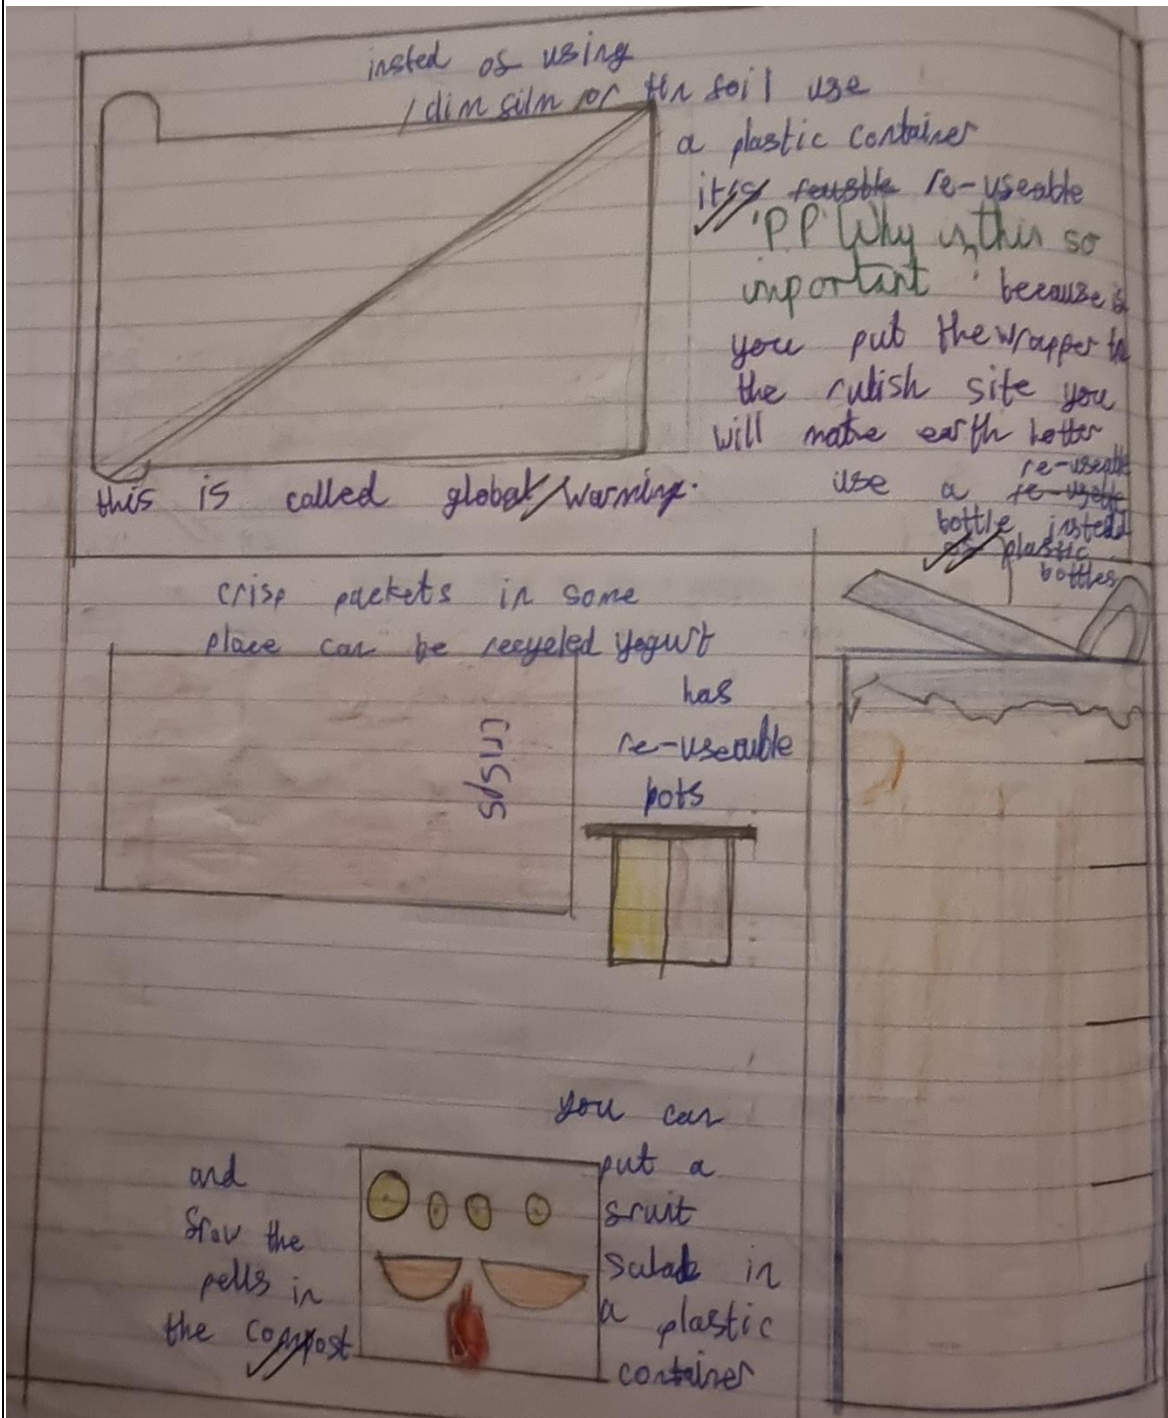 insted of using
/dim film or tin foil use
a plastic container
it's reusble re-useable
'P.P' Why is this so
important ' because if
you put the wrapper in
the rubish site you
will make earth hotter
this is called global warming.
use a re-usable re-useable
bottle instead
of plastic
bottles
crisp packets in some
place can be recycled yogurt
has
re-useable
pots
crisps
you can
put a
fruit
salad in
a plastic
container
and
frow the
pells in
the compost